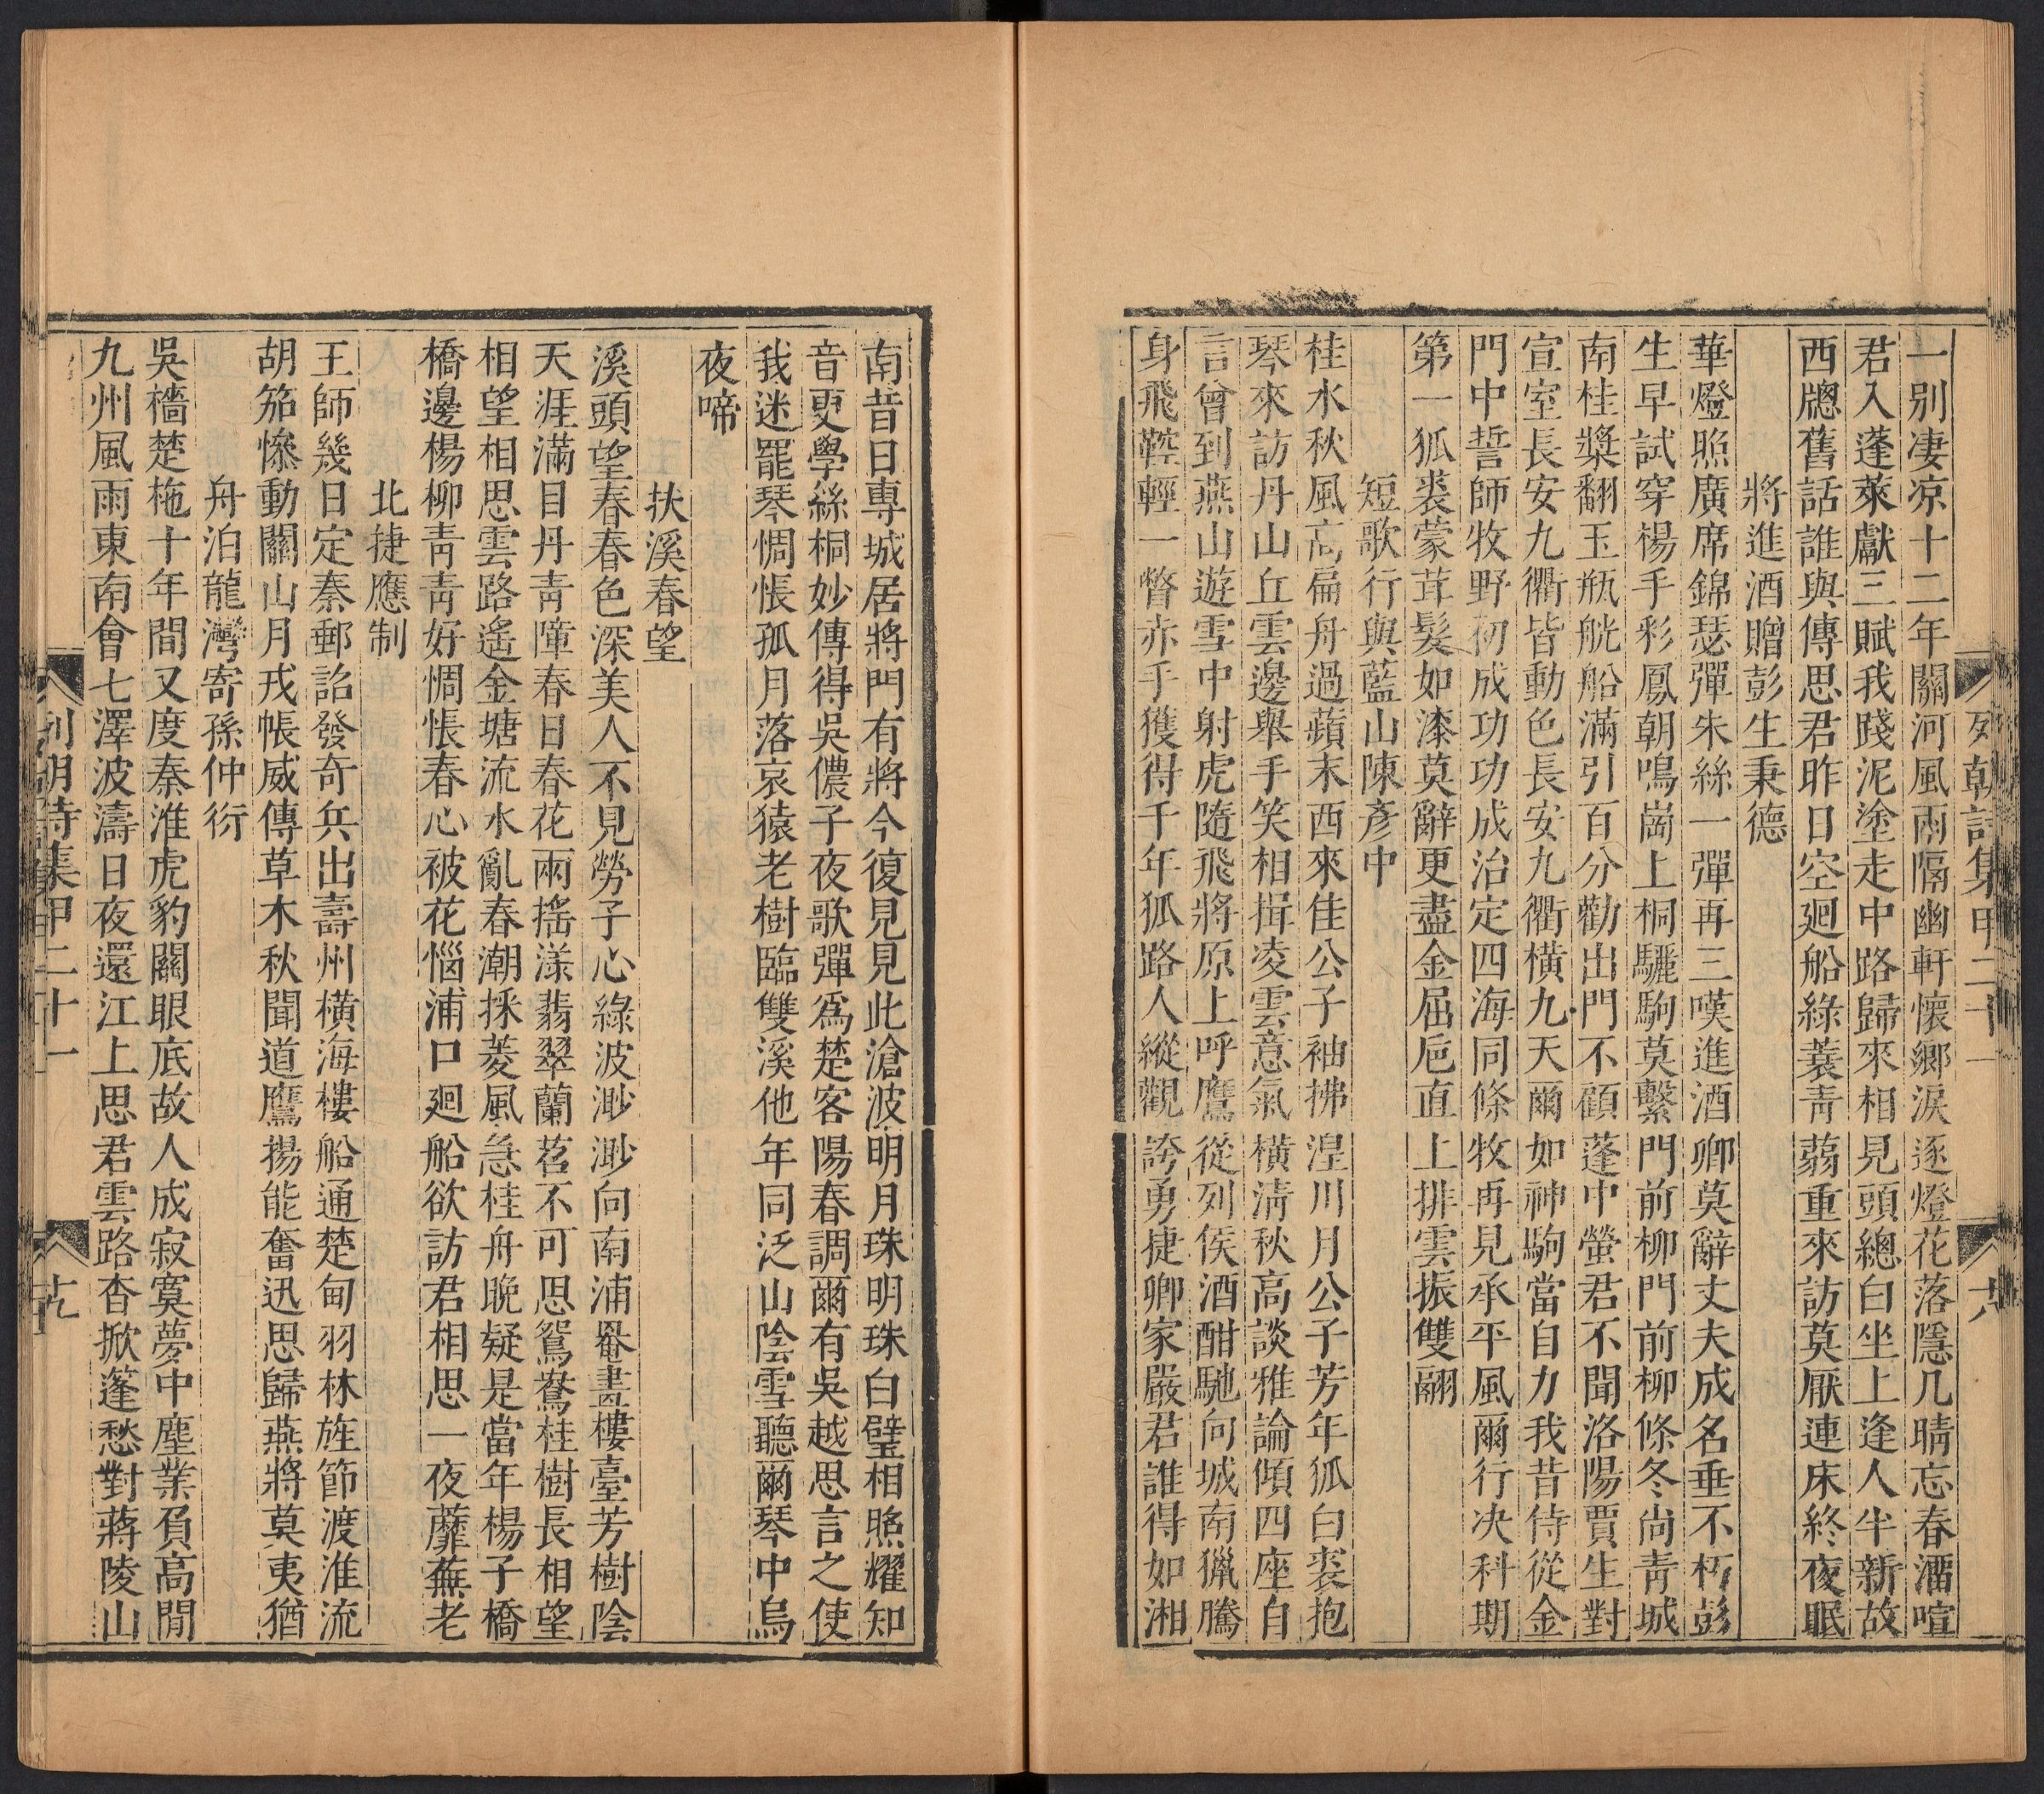 列朝詩集甲二十一
六
一別凄凉十二年關河風雨隔幽軒懷鄉淚逐燈花落隱几晴忘春酒喧
君入蓬萊獻三賦我踐泥塗走中路歸來相見頭總白坐上逢人半新故
西牕舊話誰與傳思君昨日空廻船綠蓑青蒻重來訪莫厭連床終夜眠
將進酒贈彭生秉德
華燈照廣席錦瑟彈朱絲一彈再三嘆進酒卿莫辭丈夫成名垂不朽彭
生早試穿楊手彩鳳朝鳴崗上桐驪駒莫繫門前柳門前柳條冬尚青城
南桂槳翻玉瓶觥船滿引百分勸出門不顧蓬中螢君不聞洛陽賈生對
宣室長安九衢皆動色長安九衢橫九天爾如神駒當自力我昔侍從金
門中誓師牧野初成功功成治定四海同條牧再見承平風爾行决科期
第一狐裘蒙茸髮如漆莫辭更盡金屈卮直上排雲振雙翮
短歌行與藍山陳彥中
桂水秋風高扁舟過蘋末西來佳公子袖拂湟川月公子芳年狐白裘抱
琴來訪丹山丘雲邊舉手笑相揖凌雲意氣橫清秋高談雅論傾四座自
言曾到燕山遊雪中射虎隨飛將原上呼鷹從列侯酒酣馳向城南獵騰
身飛鞚輕一瞥赤手獲得千年狐路人縱觀誇勇捷卿家嚴君誰得如湘
南昔日專城居將門有將今復見見此滄波明月珠明珠白璧相照耀知
音更學絲桐妙傳得吳儂子夜歌彈爲楚客陽春調爾有吳越思言之使
我迷罷琴惆悵孤月落哀猿老樹臨雙溪他年同泛山陰雪聽爾琴中烏
夜啼
扶溪春望
溪頭望春春色深美人不見勞子心綠波渺渺向南浦罨畫樓臺芳樹陰
天涯滿目丹青障春日春花兩搖漾翡翠蘭苕不可思鴛鴦桂樹長相望
相望相思雲路遙金塘流水亂春潮採菱風急桂舟晚疑是當年楊子橋
橋邊楊柳青青好惆悵春心被花惱浦口廻船欲訪君相思一夜蘼蕪老
北捷應制
王師幾日定秦郵詔發奇兵出壽州橫海樓船通楚甸羽林旌節渡淮流
胡笳慘動關山月戎帳威傳草木秋聞道鷹揚能奮迅思歸燕將莫夷猶
舟泊龍灣寄孫仲衍
吳檣楚柂十年間又度秦淮虎豹關眼底故人成寂寞夢中塵業負高閒
九州風雨東南會七澤波濤日夜還江上思君雲路杳掀蓬愁對蔣陵山
列朝詩集甲二十一
十九